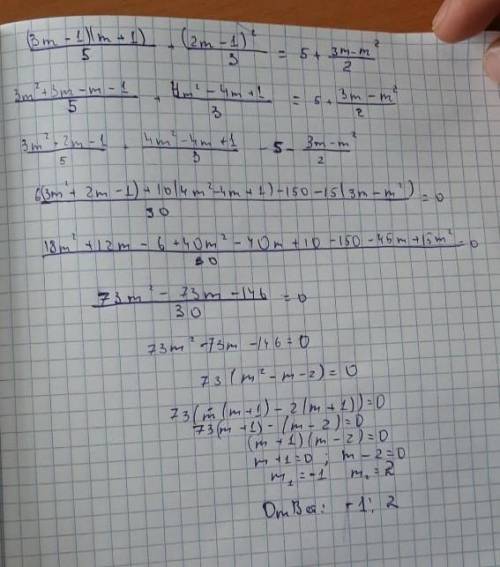 (3m-1)(m+1)/5 + (2m-1)²/3 = 5 + 3m-m²/2
3m²+3m-m-1/5 + 4m²-4m+1/3 = 5 + 3m-m²/2
3m²+2m-1/5 + 4m²-4m+1/3 - 5 - 3m-m²/2
6(3m²+2m-1)+10(4m²-4m+1)-150-15(3m-m²)/30 = 0
18m²+12m-6+40m²-40m+10-150-45m+15m²/30 = 0
73m²-73m-146/30 = 0
73m²-73m-146=0
73(m²-m-2)=0
73(m(m+1)-2(m+1))=0
73(m+1)-(m-2)=0
(m+1)(m-2)=0
m+1=0 ; m-2=0
m₁=-1 m₂=2
Ответ: -1; 2